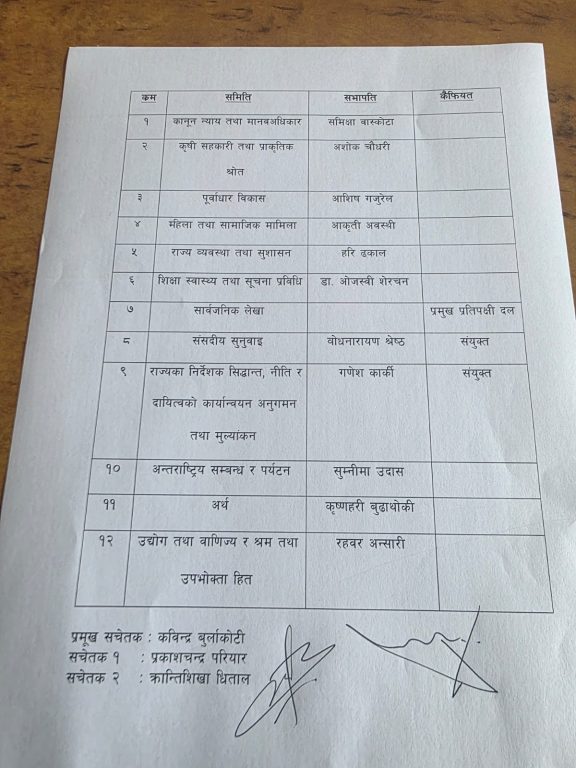 कम समिति सभापति कैफियत
१ कानून न्याय तथा मानवअधिकार समिक्षा बास्कोटा
२ कृषी सहकारी तथा प्राकृतिक अशोक चौधरी
श्रोत
३ पूर्वाधार विकास आशिष गजुरेल
४ महिला तथा सामाजिक मामिला आकृती अवस्थी
५ राज्य व्यवस्था तथा सुशासन हरि ढकाल
६ शिक्षा स्वास्थ्य तथा सूचना प्रविधि डा. ओजस्वी शेरचन
७ सार्वजनिक लेखा प्रमुख प्रतिपक्षी दल
८ संसदीय सुनुवाइ बोधनारायण श्रेष्ठ संयुक्त
९ राज्यका निर्देशक सिद्धान्त, नीति र गणेश कार्की संयुक्त
दायित्वको कार्यान्वयन अनुगमन
तथा मुल्यांकन
१० अन्तराष्ट्रिय सम्बन्ध र पर्यटन सुम्नीमा उदास
११ अर्थ कृष्णहरी बुढाथोकी
१२ उद्योग तथा वाणिज्य र श्रम तथा रहवर अन्सारी
उपभोक्ता हित
प्रमूख सचेतक : कविन्द्र बुर्लाकोटी
सचेतक १ : प्रकाशचन्द्र परियार
सचेतक २ : क्रान्तिशिखा धिताल